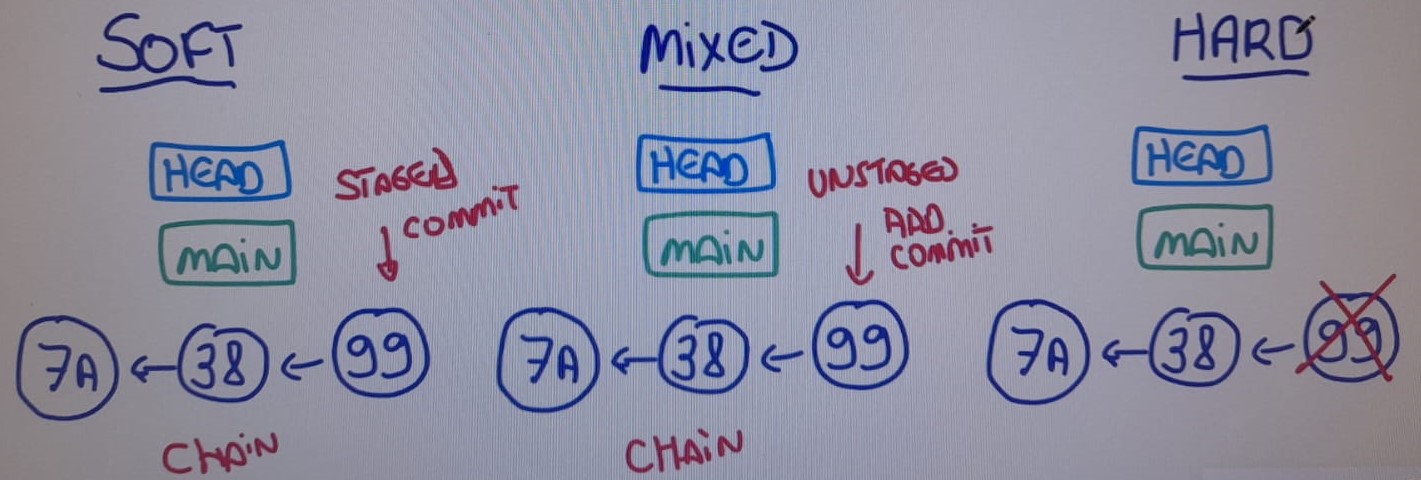 SOFT
HEAD
STAGED
COMMIT
MAIN
7A
38
99
CHAIN
MIXED
HEAD
UNSTAGED
ADD
COMMIT
MAIN
7A
38
99
CHAIN
HARD
HEAD
MAIN
7A
38
99